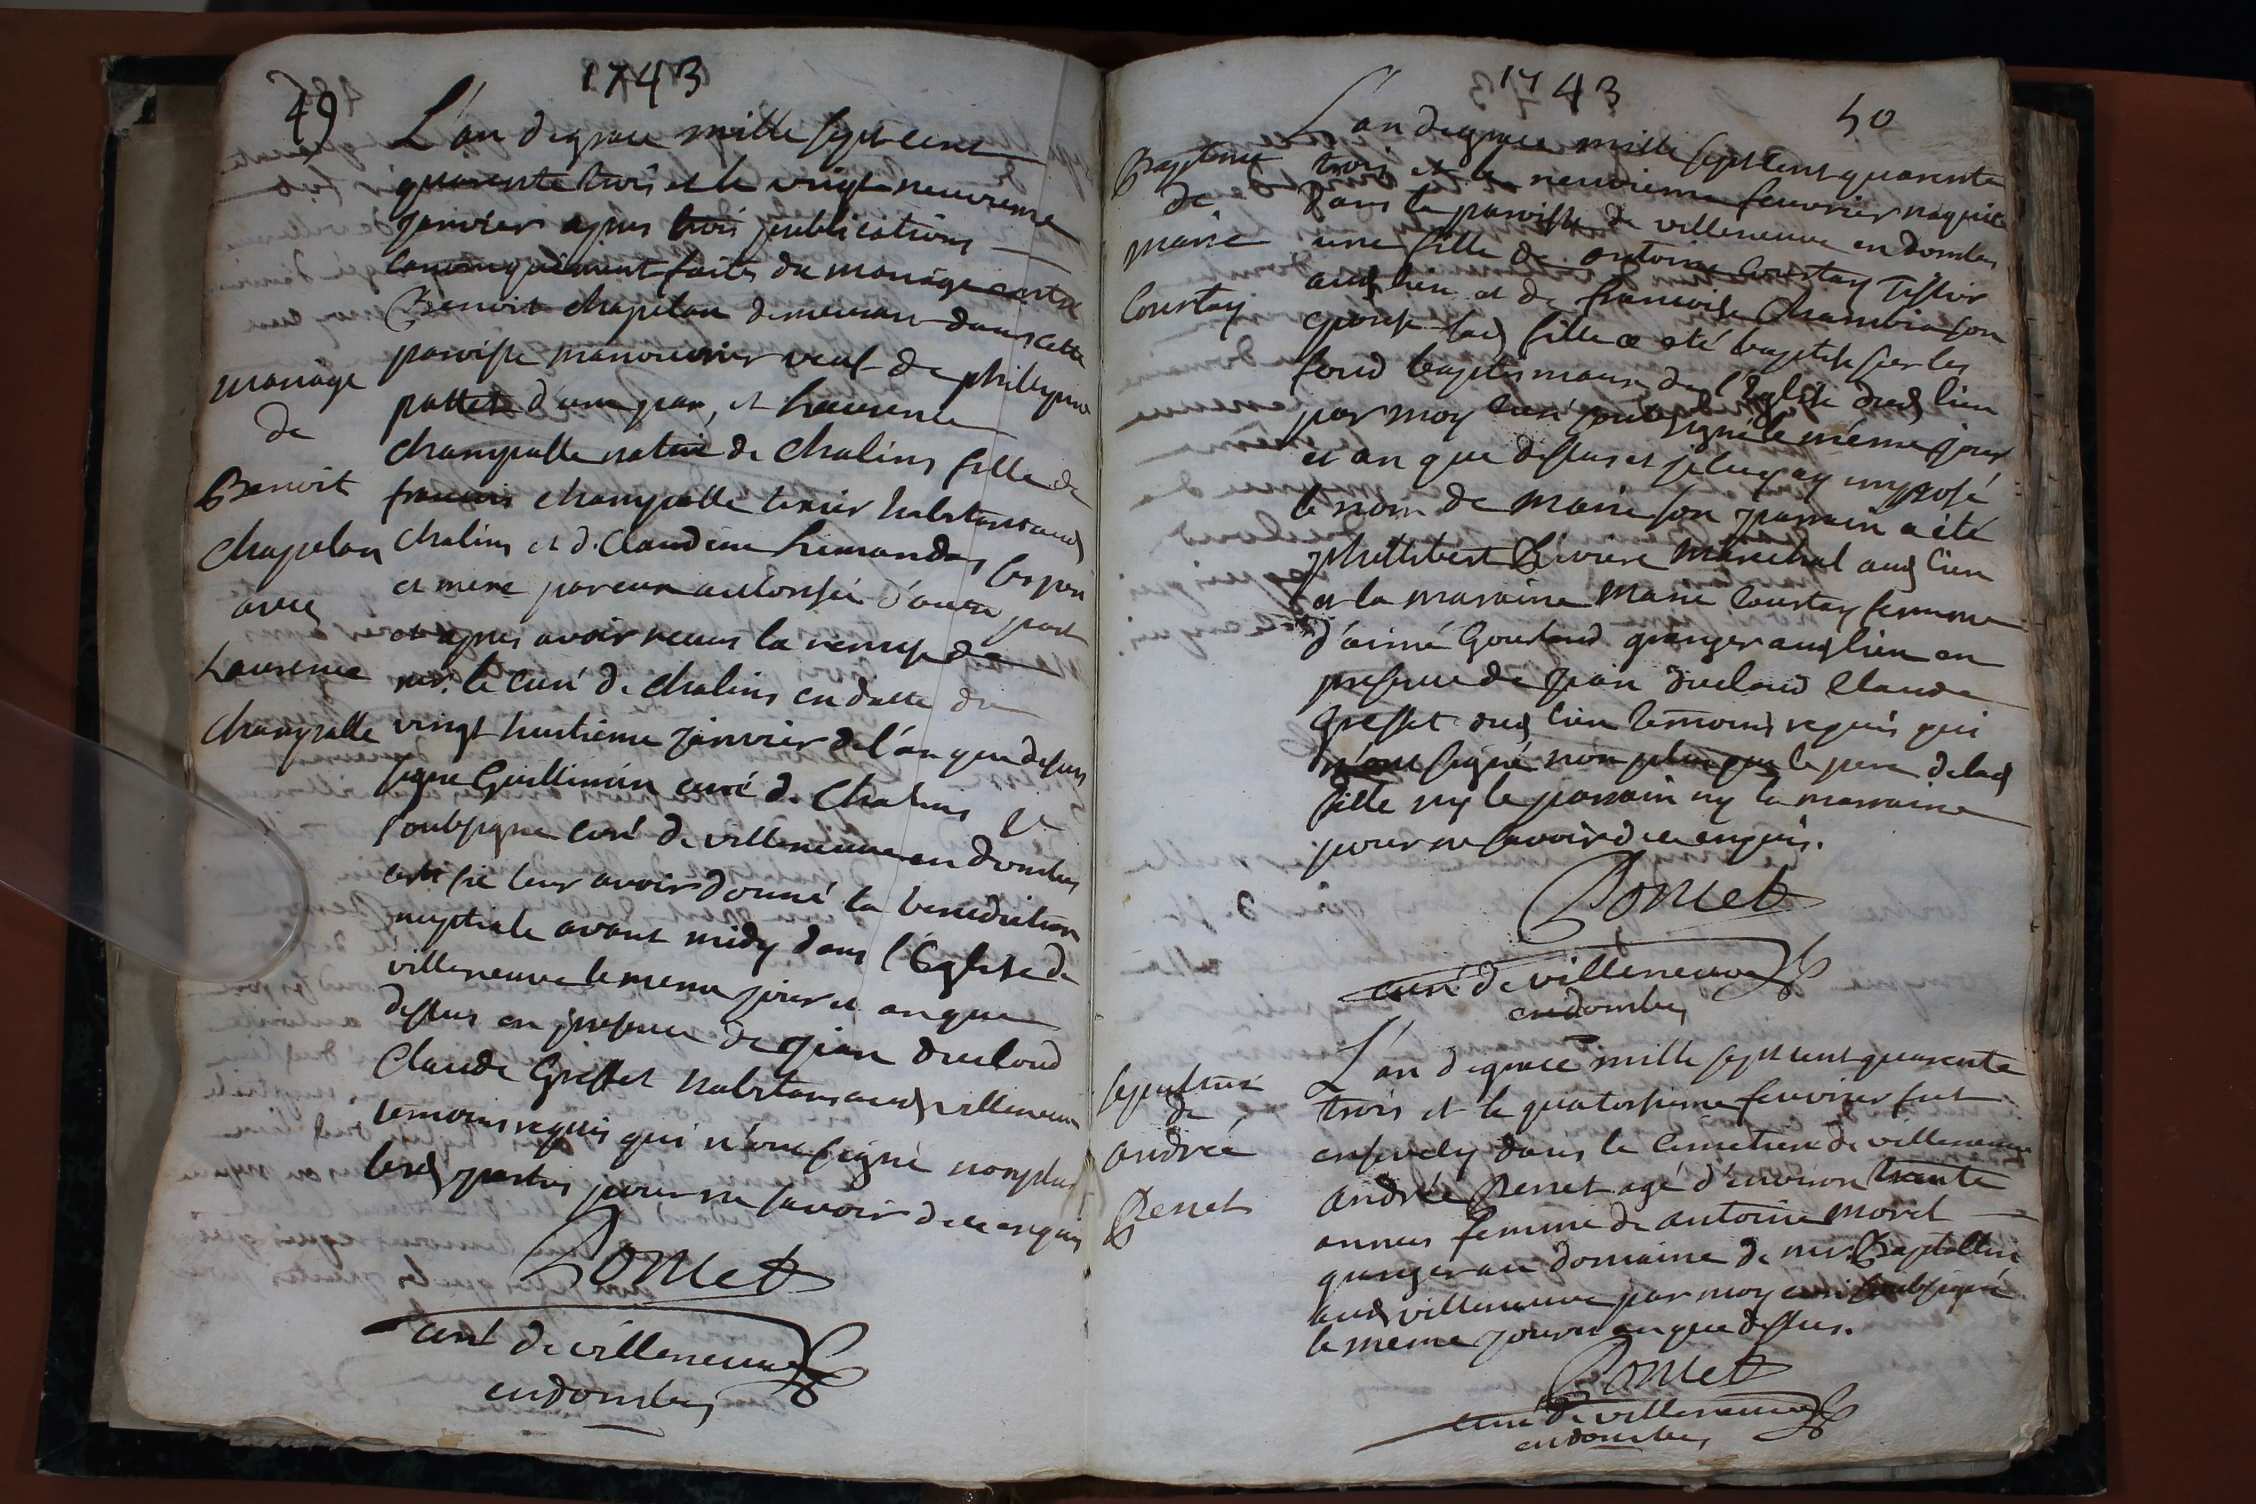 1743
49
L'an de grace mille sept cent
quarente trois et le vingt neuvieme
janvier apres trois publications
canoniquement faites du mariage entre
Benoit chapelan demeurant dans cette
paroisse manouvrier veuf de philleppine
pattet d'une par, et Laurence
champalle native de chalins fille de
francois champalle texier habitant aud
chalins et de Claudine humandas ses pere
et mere par eux autorisée d'autre part
et apres avoir receus la remise de
mr. le curé de chalins en datte du
vingt huitieme janvier de l'an que dessus
signe Guillimin curé de Chalins je
soubsigne curé de villeneuve en dombes
certifie leur avoir donné la benediction
nuptiale avant midy dans l'Eglise de
villeneuve le meme jour et an que
dessus en presence de jean ducloud
Claude Gresset habitans aud villeneuve
temoins requis qui n'ont signé non plus
lesd parties pour ne savoir de ce enquis
Poncet
curé de villeneuve
en dombes
mariage
de
Benoit
chapelan
avec
Laurence
champalle
1743
50
L'an de grace mille sept cent quarente
trois et le neuvieme feuvrier naquit
dans la paroisse de villeneuve en dombes
une fille de antoine Courtay Tissier
aud lieu et de francoise Chambia son
epouse lad fille a eté baptisée sur les
fond baptismaux de l'Eglise dud lieu
par moy curé soubsigné le même jour
et an que dessus et je luy ay imposé
le nom de marie son parrain a été
phillibert Riviere Maréchal aud lieu
et la maraine Marie Courtay femme
d'aimé Gourland granger aud lieu en
presence de jean ducloud Claude
Gresset dud lieu temoins requis qui
n'ont signé non plus que le pere de lad
fille ny le parrain ny la marraine
pour ne savoir de ce enquis.
Poncet
curé de villeneuve
en dombes
Baptême
de
marie
Courtay
L'an de grace mille sept cent quarente
trois et le quatorsieme feuvrier fut
ensevely dans le Cimetiere de villeneuve
andrée Perret agé d'environ trente
annees femme de antoine morel
granger au domaine de mr. Baptallin
aud villeneuve par moy curé soubsigné
le meme jour et an que dessus.
Poncet
curé de villeneuve
en dombes
sepulture
de
andrée
Perret